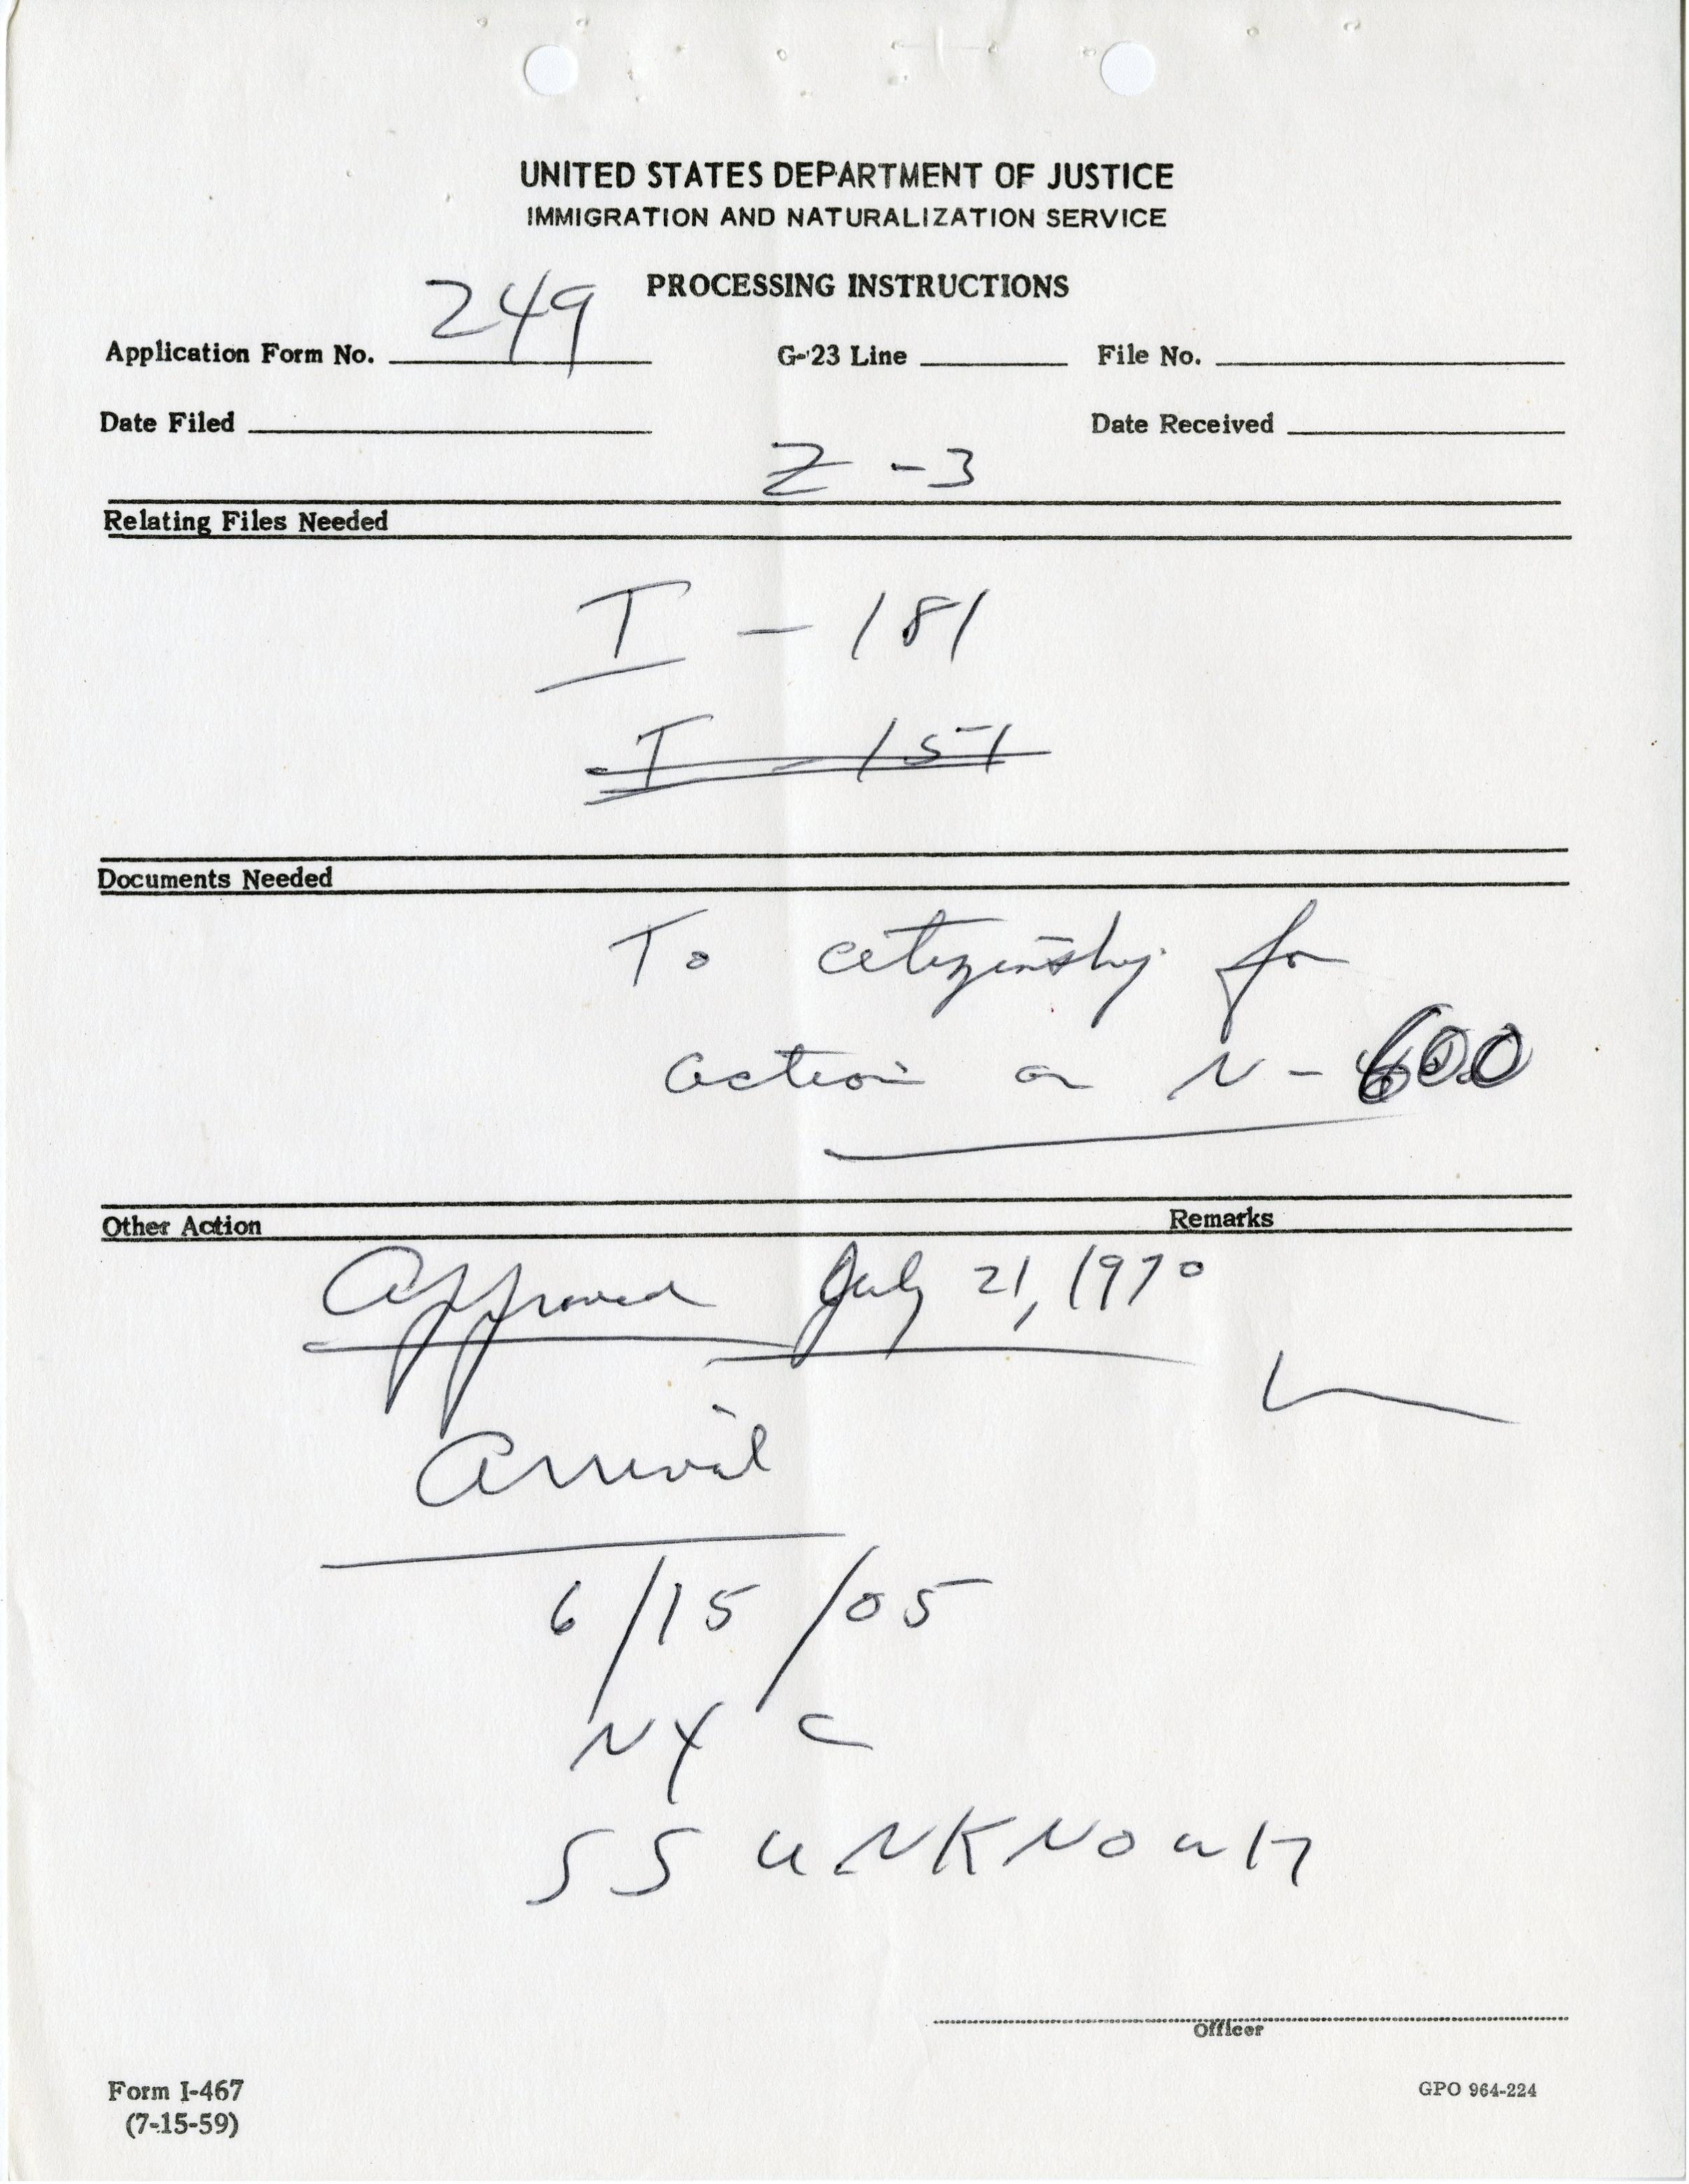 UNITED STATES DEPARTMENT OF JUSTICE
IMMIGRATION AND NATURALIZATION SERVICE
PROCESSING INSTRUCTIONS
Application Form No. 249 G-23 Line File No.
Date Filed Date Received
Z-3
Relating Files Needed
I - 181
I - 151
Documents Needed
To citizenship for
action on N-600
Other Action Remarks
Approved July 21, 1970
Arrival
6/15/05
NYC
SS UNKNOWN
Officer
Form I-467 GPO 964-224
(7-15-59)